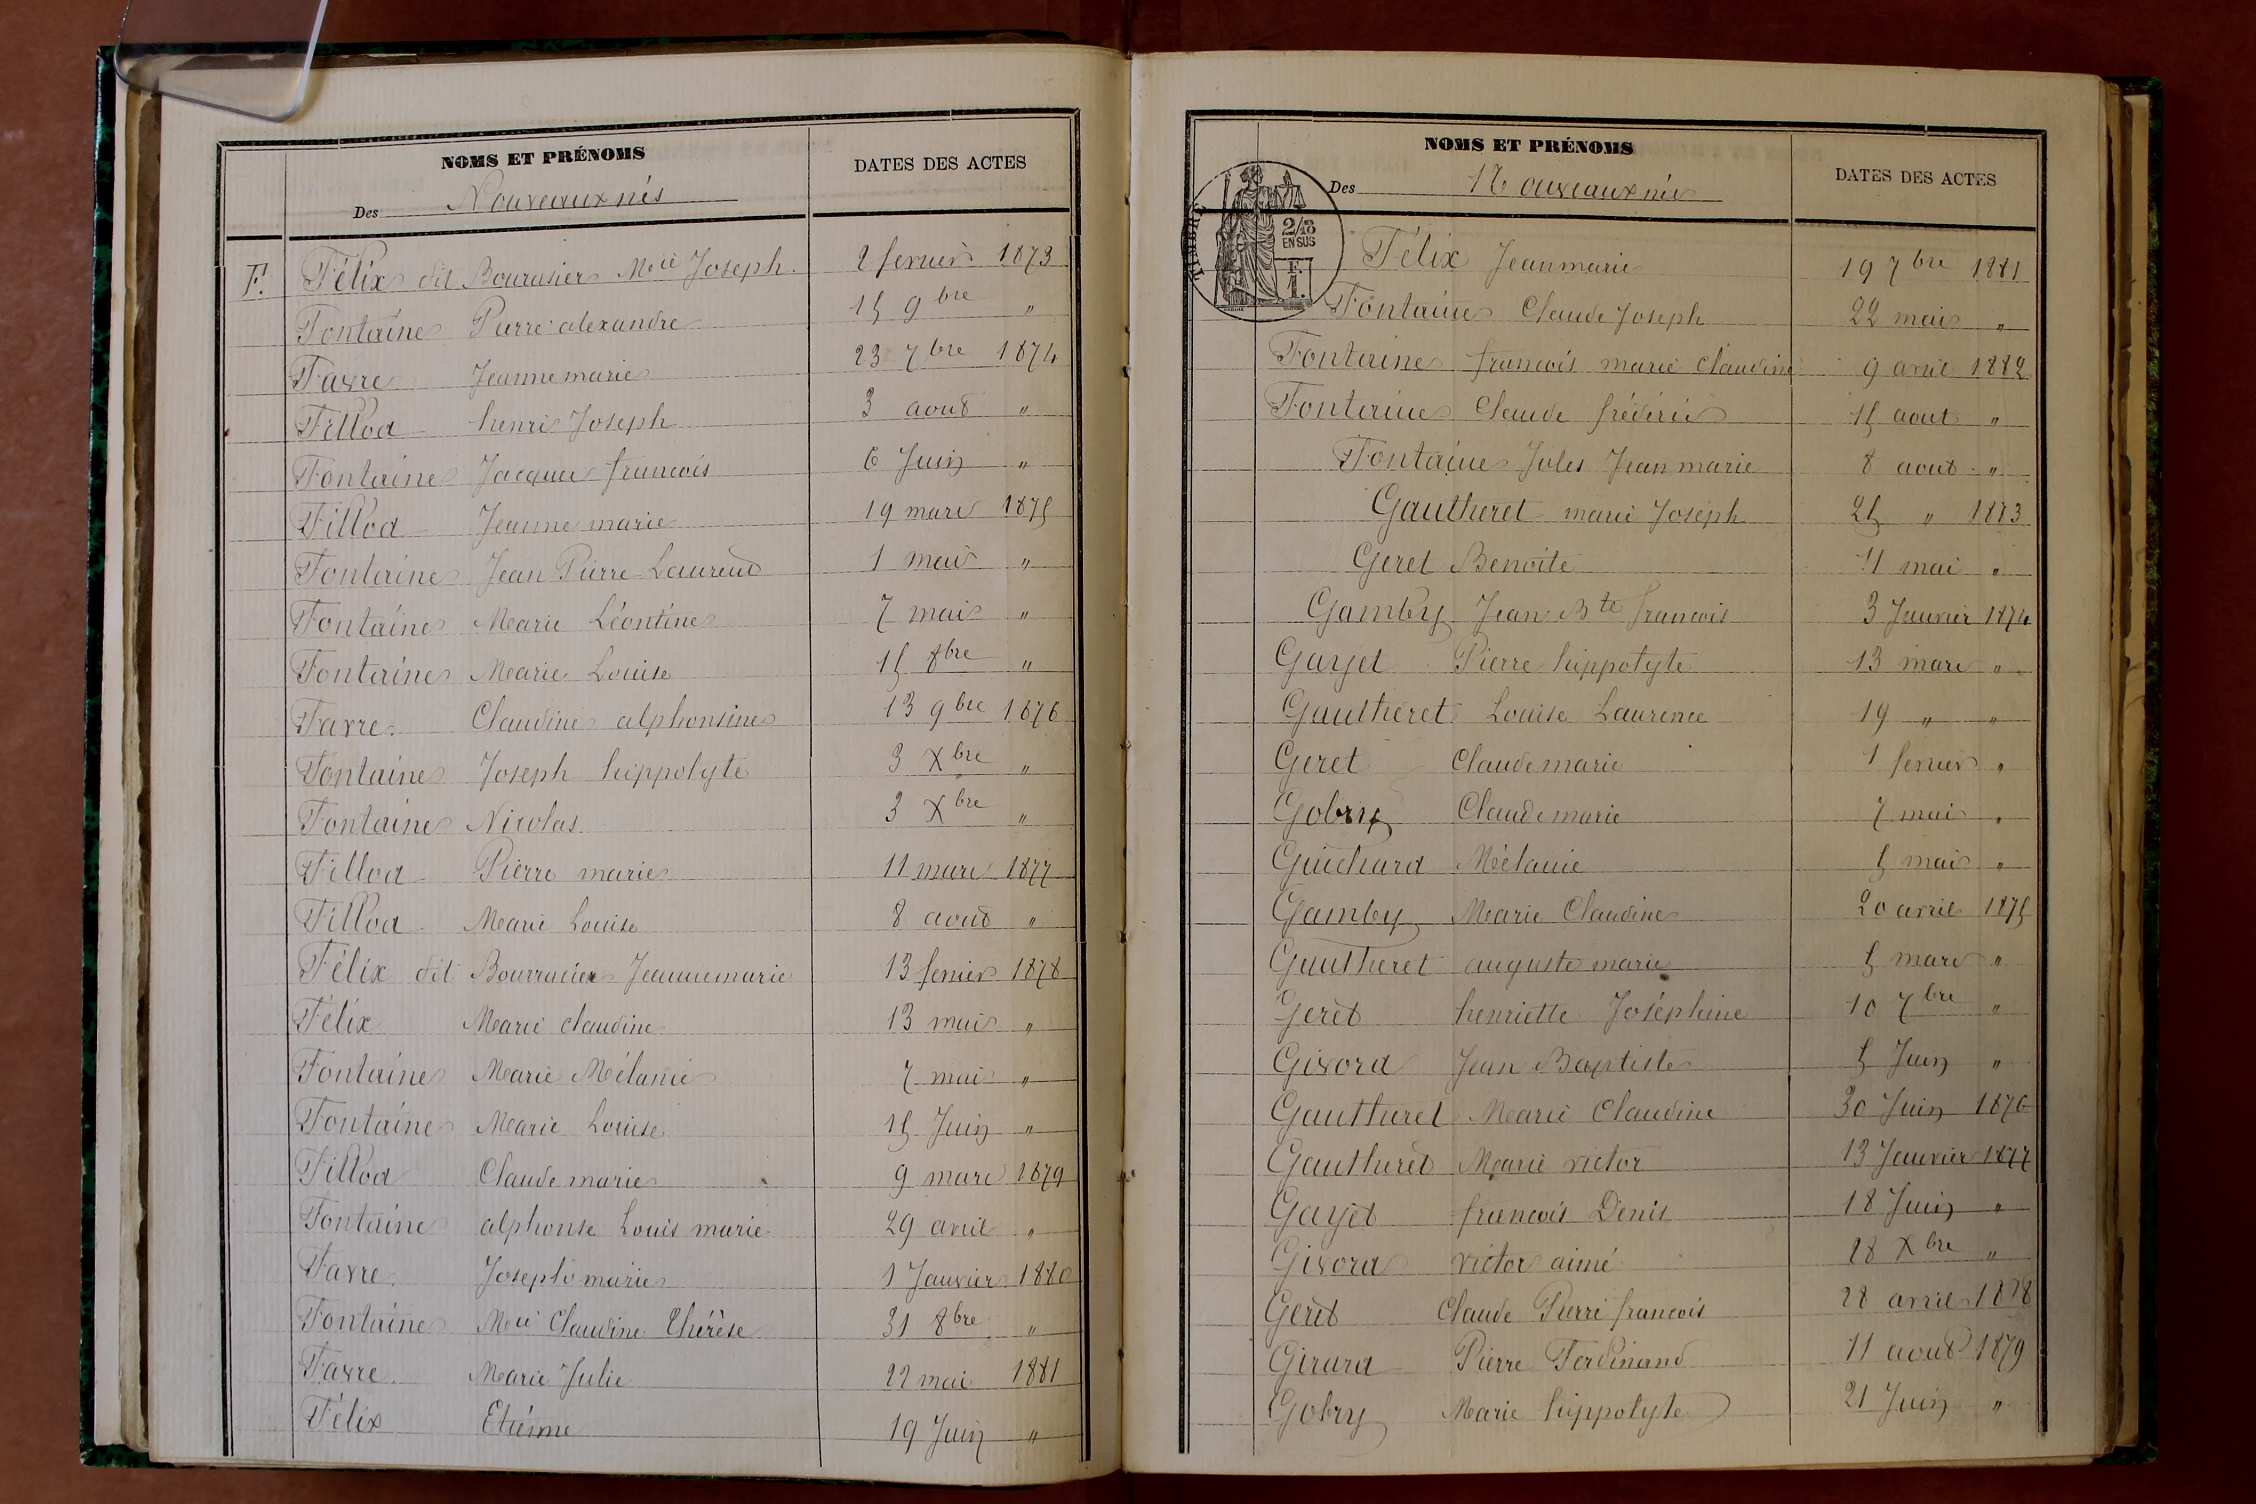 NOMS ET PRÉNOMS
DATES DES ACTES
Des Nouveaux nés
F. Félix dit Bourrusier Mcie Joseph. 2 fevrier 1873
Fontaine Pierre alexandre 15 9bre "
Favre Jeanne marie 23 7bre 1874
Fillod henri Joseph 3 aout "
Fontaine Jacques francois 6 Juin "
Fillod Jeanne marie 19 mars 1875
Fontaine Jean Pierre Laurend 1 mai "
Fontaine Marie Léontine 7 mai "
Fontaine Marie Louise 15 8bre "
Favre. Claudine alphonsine 13 9bre 1876
Fontaine Joseph hippolyte 3 Xbre "
Fontaine Nicolas 3 Xbre "
Fillod Pierre marie 11 mars 1877
Fillod Marie Louise 8 aout "
Félix dit Bourrusier Jeannemarie 13 fevrier 1878
Félix Marie claudine 13 mai "
Fontaine Marie Mélanie 7 mai "
Fontaine Marie Louise 15 Juin "
Fillod Claude marie 9 mars 1879
Fontaine alphonse Louis marie 29 avril "
Favre. Joseph marie 1 Janvier 1880
Fontaine Mcie Claudine Thérèse 31 8bre "
Favre. Marie Julie 22 mai 1881
Félix Etiénne 19 Juin "
NOMS ET PRÉNOMS
DATES DES ACTES
Des Nouveaux nés
TIMBRE
2/10
EN SUS
F.
1.
Félix Jeanmarie 19 7bre 1881
Fontaine Claude Joseph 22 mai "
Fontaine francois marie Claudine 9 avril 1882
Fontaine Claude frédéric 15 aout "
Fontaine Jules Jean marie 8 aout "
Gautheret marie Joseph 25 " 1873
Geret Benoite 11 mai "
Gamby Jean Bte francois 3 Janvier 1874
Gayet Pierre hippolyte 13 mars "
Gautheret Louise Laurence 19 " "
Geret Claudemarie 1 fevrier "
Gobry Claudemarie 7 mai "
Guichard Mélanie 5 mai "
Gamby Marie Claudine 20 avril 1875
Gautheret auguste marie 5 mars "
Geret henriette Joséphine 10 7bre "
Givord Jean Baptiste 5 Juin "
Gautheret Marie Claudine 30 Juin 1876
Gautheret Marie victor 13 Janvier 1877
Gayet francois Denis 18 Juin "
Givord victor aimé 28 Xbre "
Geret Claude Pierre francois 28 avril 1878
Girard Pierre Ferdinand 11 aout 1879
Gobry Marie hippolyte 21 Juin "